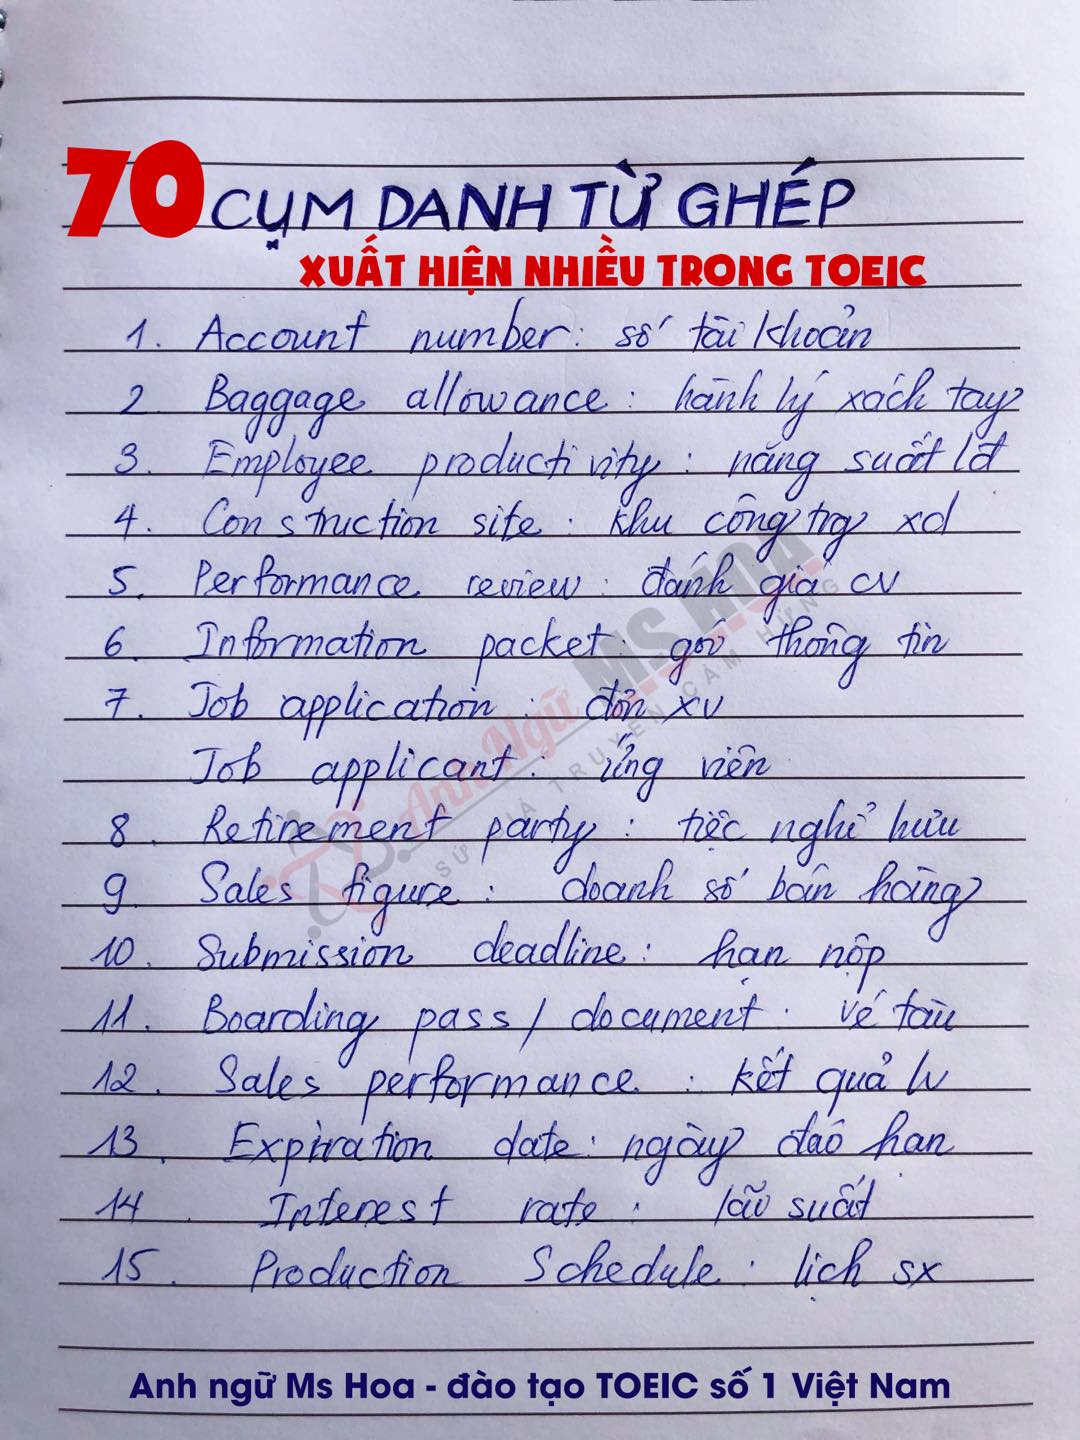 70 CỤM DANH TỪ GHÉP
XUẤT HIỆN NHIỀU TRONG TOEIC
1. Account number: số tài khoản
2. Baggage allowance: hành lý xách tay
3. Employee productivity: năng suất lđ
4. Construction site: khu công trg xd
5. Performance review: đánh giá cv
6. Information packet: gói thông tin
7. Job application: đơn xv
Job applicant: ứng viên
8. Retirement party: tiệc nghỉ hưu
9. Sales figure: doanh số bán hàng
10. Submission deadline: hạn nộp
11. Boarding pass/document: vé tàu
12. Sales performance: kết quả lv
13. Expiration date: ngày đáo hạn
14. Interest rate: lãi suất
15. Production Schedule: lịch sx
Anh Ngữ MS HOA
SỨ GIẢ TRUYỀN CẢM HỨNG
Anh ngữ Ms Hoa - đào tạo TOEIC số 1 Việt Nam